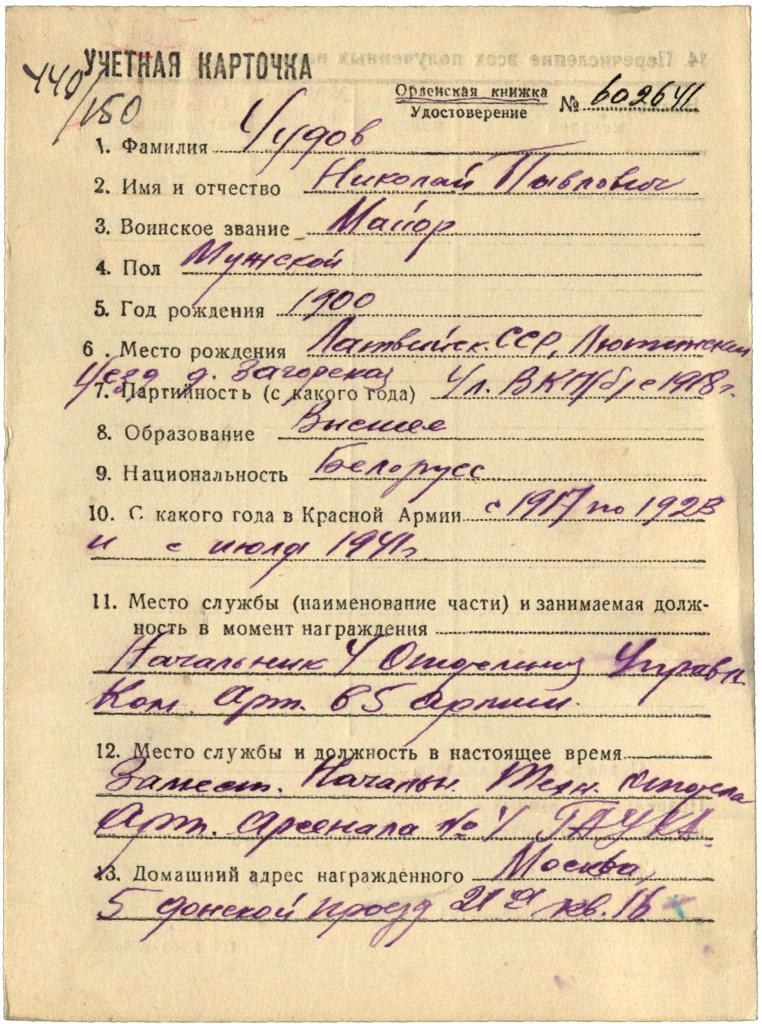 УЧЕТНАЯ КАРТОЧКА
440/150
Орденская книжка
Удостоверение № 602641
1. Фамилия Чудов
2. Имя и отчество Николай Павлович
3. Воинское звание Майор
4. Пол Мужской
5. Год рождения 1900
6. Место рождения Латвийск. ССР,
Уезд д.
7. Партийность (с какого года) Чл. ВКП/б/ с 1918 г.
8. Образование Высшее
9. Национальность Белорусс
10. С какого года в Красной Армии с 1917 по 1923
и с июля 1941 г.
11. Место службы (наименование части) и занимаемая долж-
ность в момент награждения
Начальник 4 Отделения Управл.
Ком. Арт. 65 армии.
12. Место службы и должность в настоящее время
Замест. Начальн. Техн. Отдела
Арт. Арсенала № 4 ГАУКА.
13. Домашний адрес награжденного Москва,
5 Донской проезд 21 а кв. 16